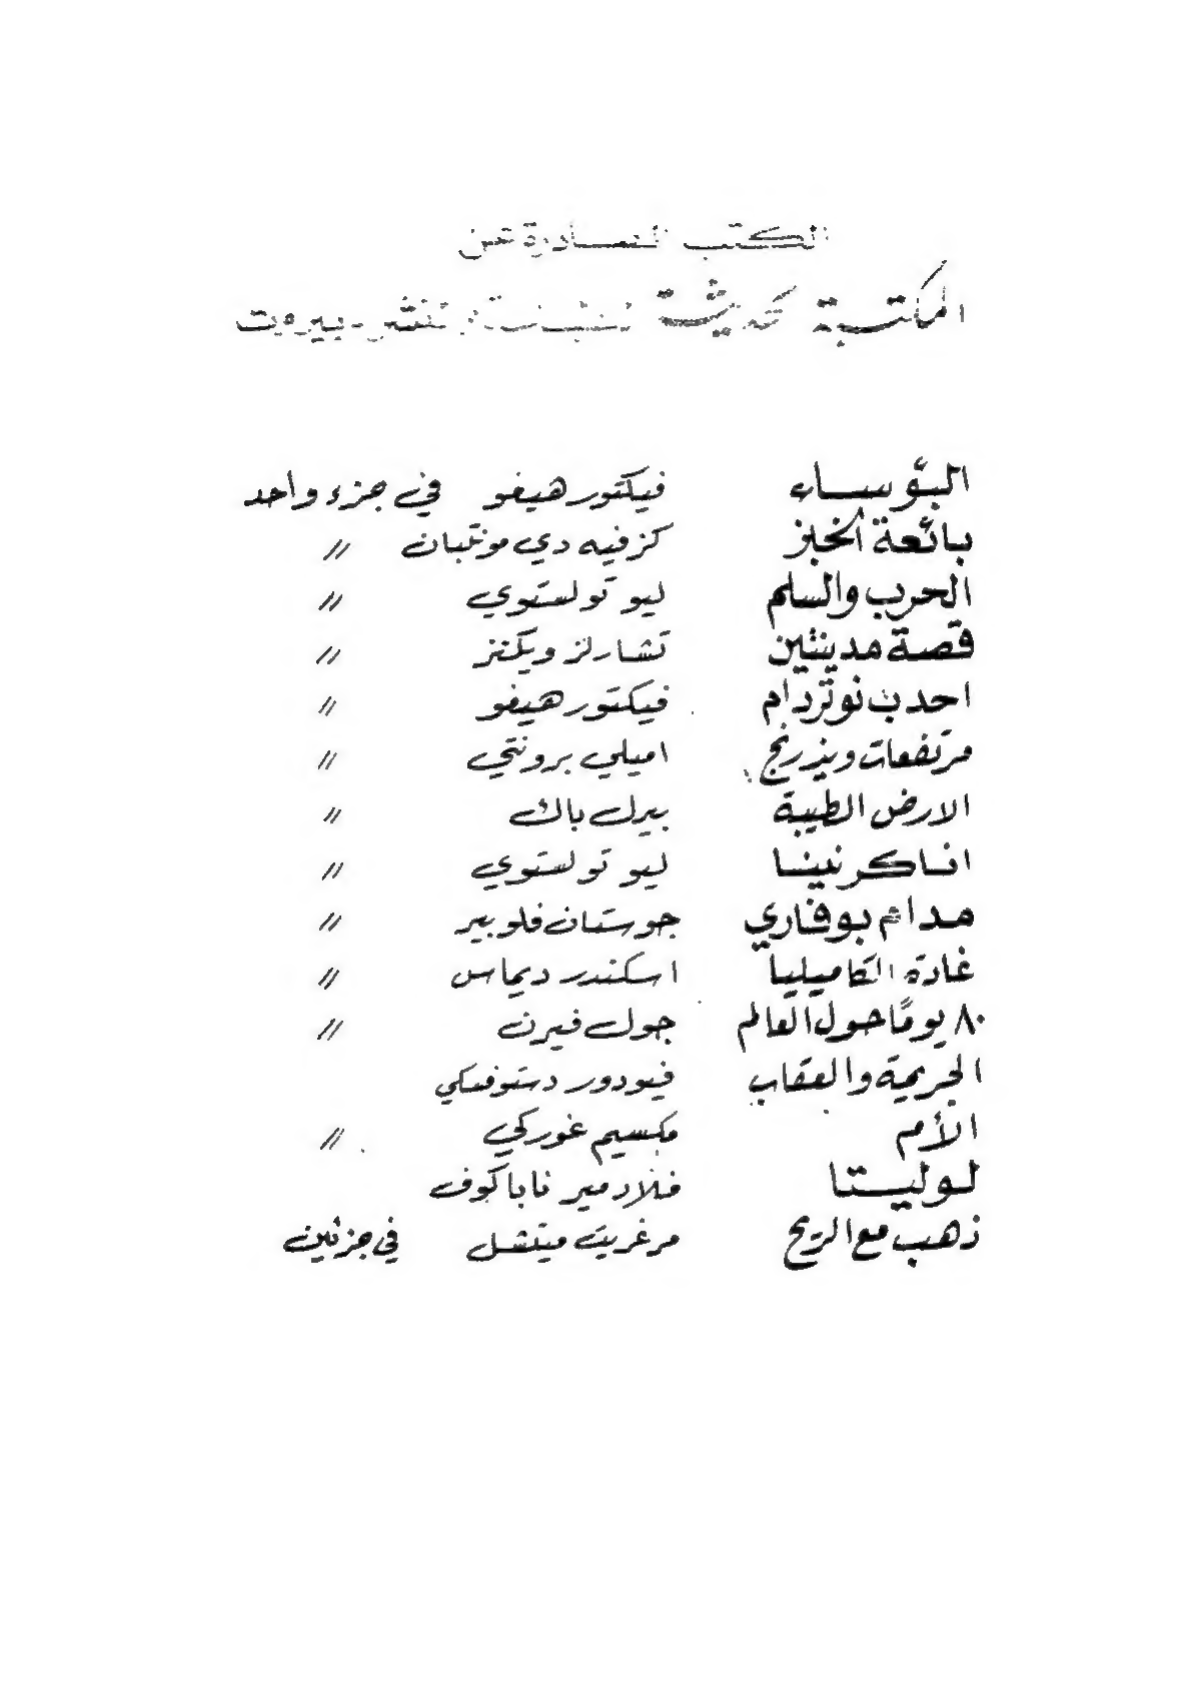 الكتب الصادرة عن
المكتبة الحديثة للطباعة والنشر - بيروت
البؤساء فيكتور هيغو في جزء واحد
بائعة الخبز كزفيه دي مونتبان //
الحرب والسلم ليو تولستوي //
قصة مدينتين تشارلز ويكنز //
احدب نوتردام فيكتور هيغو //
مرتفعات ويذرنج اميلي برونتي //
الارض الطيبة بيرل باك //
انا كرنينا ليو تولستوي //
مدام بوفاري جوستان فلوبير //
غادة الكاميليا اسكندر ديماس //
٨٠ يومًا حول العالم جول فيرن //
الجريمة والعقاب فيودور دستوفسكي
الأم مكسيم غوركي //
لوليتا فلادمير ناباكوف
ذهب مع الريح مرغريت ميتشل في جزئين